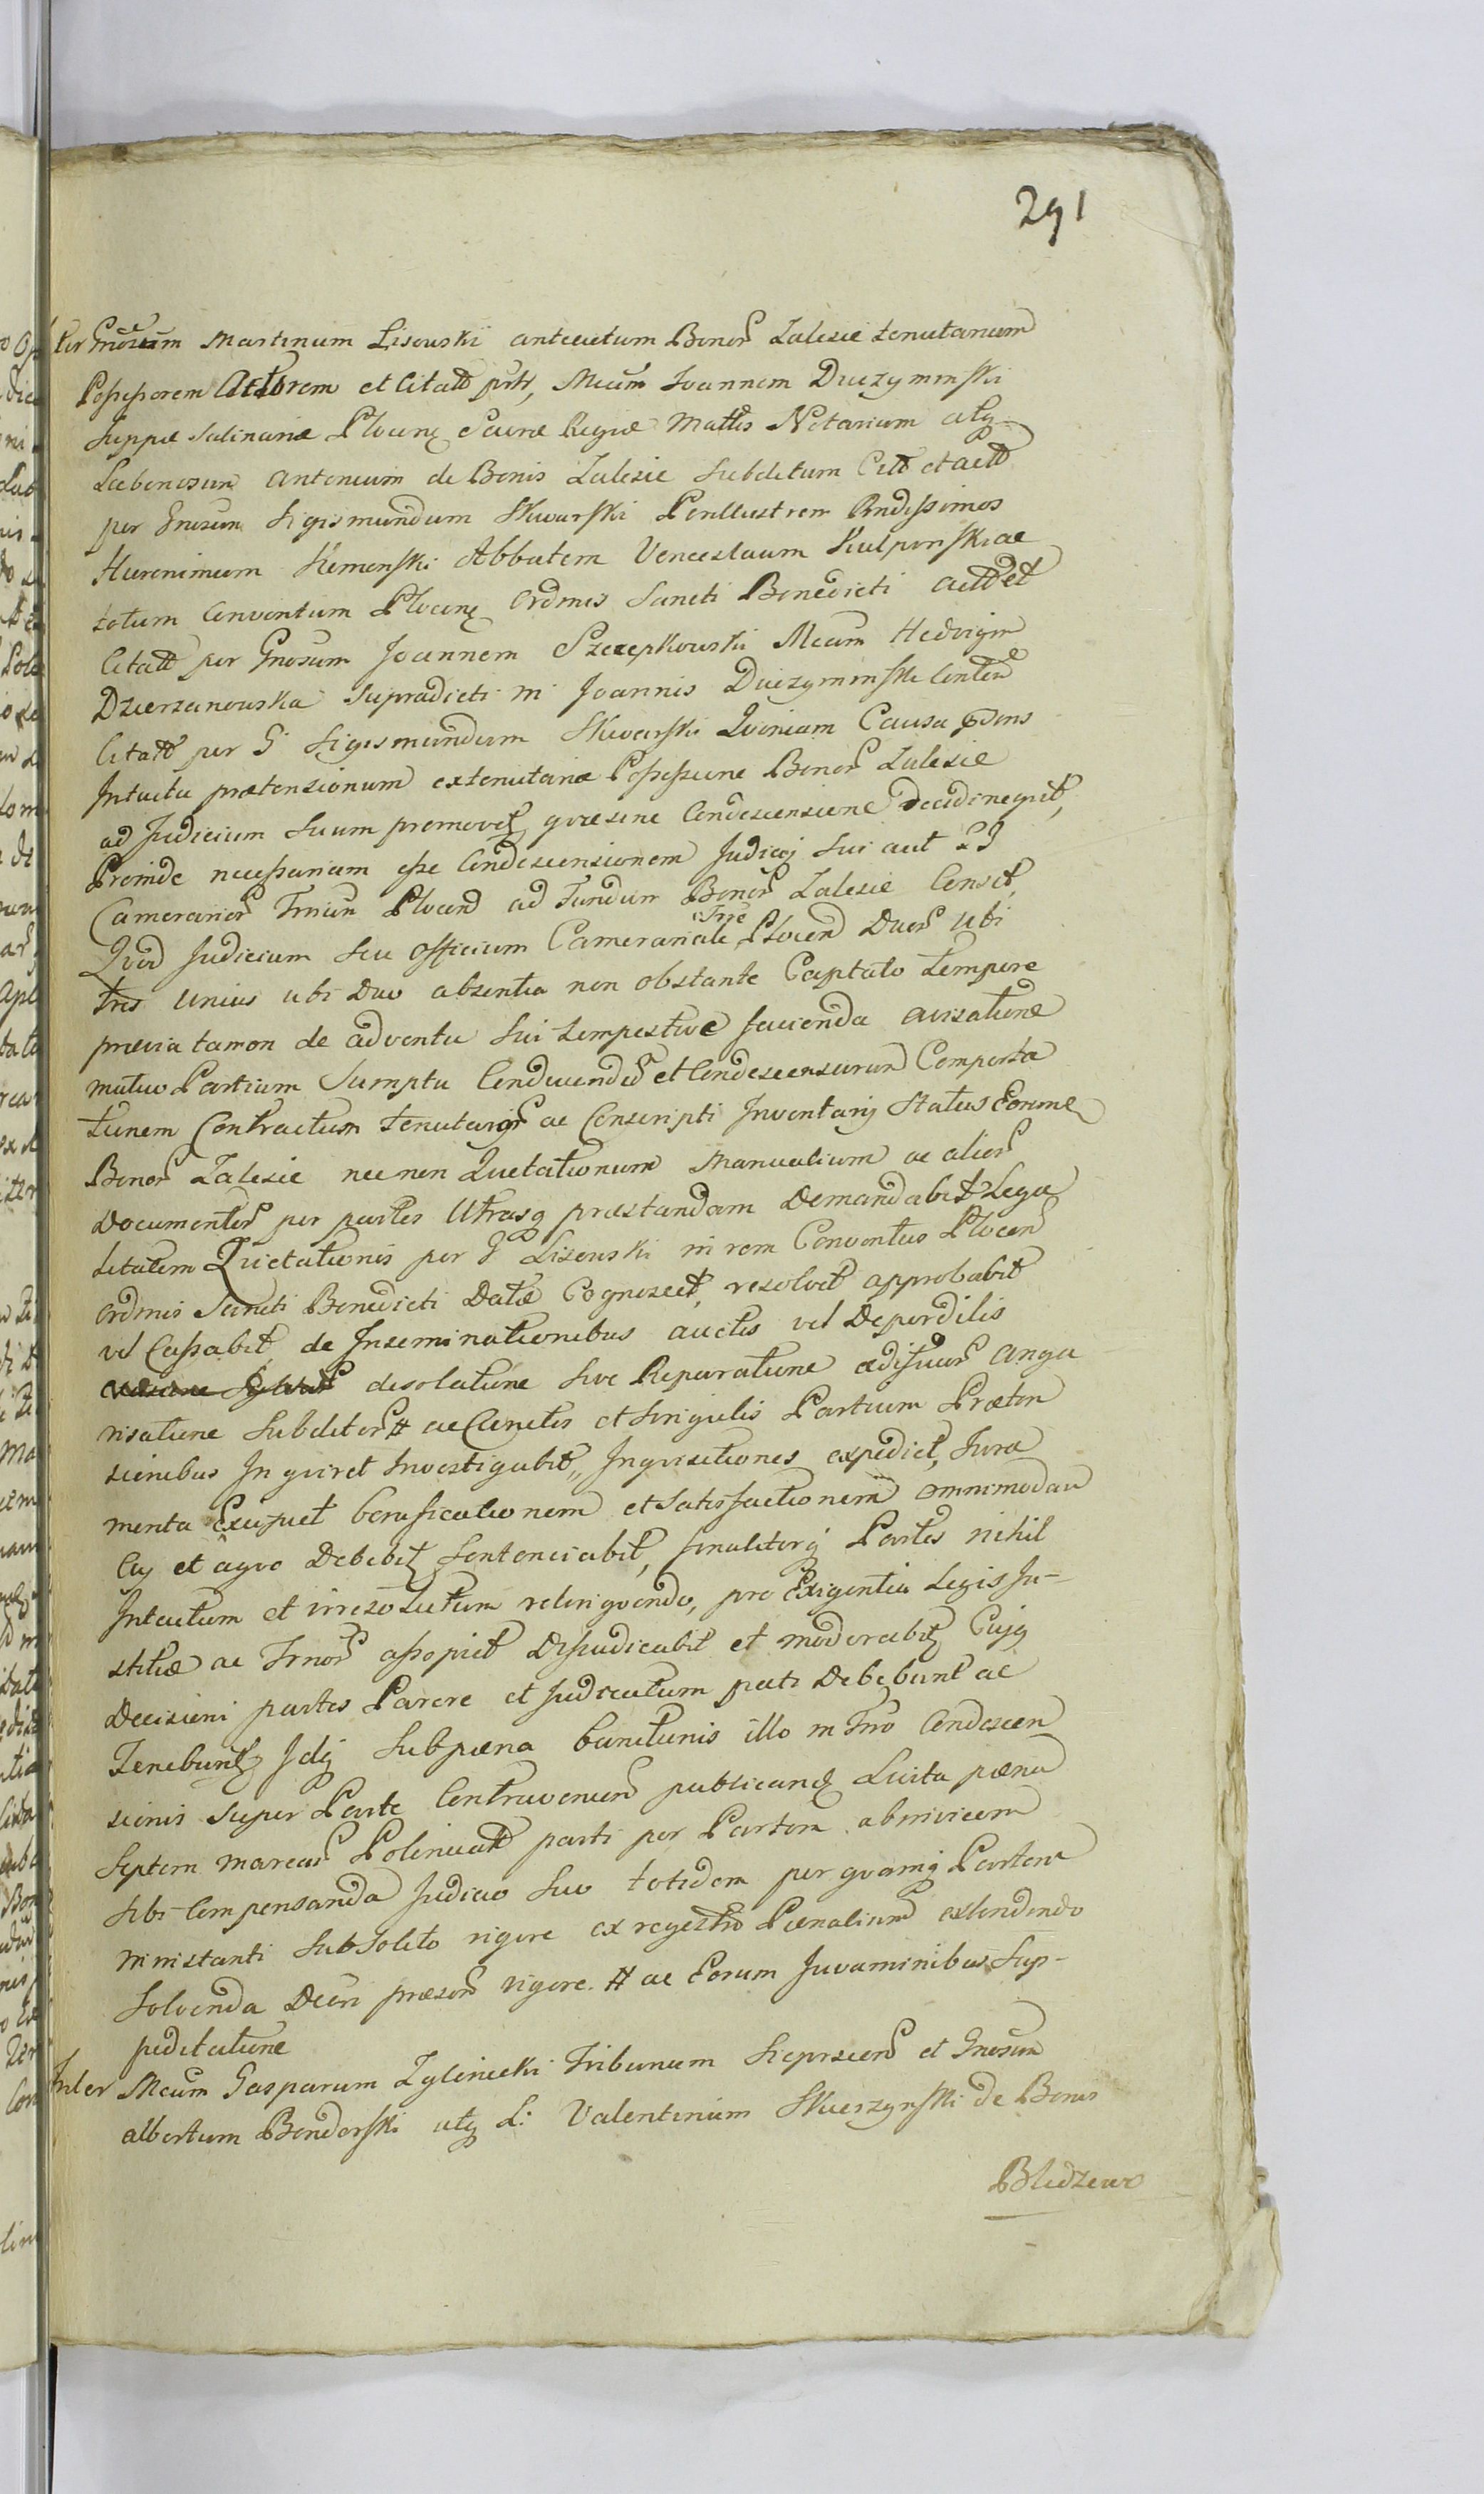 291
Inter Gnosum Martinum Lisowski antecutum Bonor Zalesie tenutarium
Possessorem Actorem et Citatt prtt, Mcum Joannem Duczyminski
Suppæ Salinariæ Plocens Sacræ Regiæ Mattis Notarium atq
Laboriosum Antonium de Bonis Zalesie Subditum Citt et actt
per Gnosum Sigismundum Skwarski Perillustrem Rndissimos
Hieronimum Kemenski Abbatem Venceslaum Sculponski ac
totum Conventum Plocens Ordinis Sancti Benedicti actt et
Citatt per Gnosum Joannem Szczepkowski Mcam Hedvigim
Dzierzanowska Supradicti M Joannis Duczyminski Conten
Citatt per G Sigismundum Skwarski Quoniam Causa præsens
Intuitu prætensionum ex tenutaria Possessione Bonor Zalesie
ad Judicium Suum promovet quæ sine Condescensione decidi nequit,
Proinde necessariam esse Condescensionem Judicij Sui aut
Camerarior Trrium Plocen ad Fundum Bonor Zalesie Censet,
Quod Judicium Seu Officium Camerariale Trre Plocen Duor ubi
tres Unius ubi Duo absentia non obstante Captato tempore
prævia tamen de adventu Sui tempestive facienda avisatione
mutuo Partium Sumptu Conducendum et Condescensurum Comporta
tionem Contractum tenutarior ac Conscripti Inventarij Status Eorume
Bonor Zalesie nec non Quietationum Manualium ac alior
Documentor per partes Utrasq præstandam Demandabit Lega
litatem Quietationis per G Lisowski in rem Conventus Plocen
Ordinis Sancti Benedicti Datæ Cognoscet, resolvet approbabit
vel Cassabit, de Inseminationibus auctis vel Deperditis
desolatione Sive Reparatione ædificior anga
risatione Subditor # ac Cunctis et Singulis Partium Præten
sionibus Inquiret Investigabit, Inquisitiones expediet, Jura
menta Exiget bonificationem et Satisfactionem omnimodam
Cuj et a quo Debebit Sentenciabit, finaliterq Partes nihil
Intactum et irresolutum relinquendo, pro Exigentia Legis Ju-
stitiæ ac Trnor assopiet Dijudicabit et moderabit Cujq
Decisioni partes Parere et Judicatum pati Debebunt ac
Tenebunt Idq Sub pæna banitionis illo in Trno Condescen
sionis Super Parte Contravenien publicand Luita pæna
Septem marcar Polonicatt parti per Partem ab invicem
Sibi Compensanda Judicio Suo totidem per quamq Partem
ministanti Sub Solito rigore ex regestro Pænalium extendendo
Solvenda Decri præsen vigore. # ac Eorum Juvaminibus Sup-
peditatione
Inter Mcum Gasparum Zylinicki Tribunum Sieprscen et Gnosum
Albertum Bonderski atq L: Valentinum Skierzynski de Bonis
Bledzewo